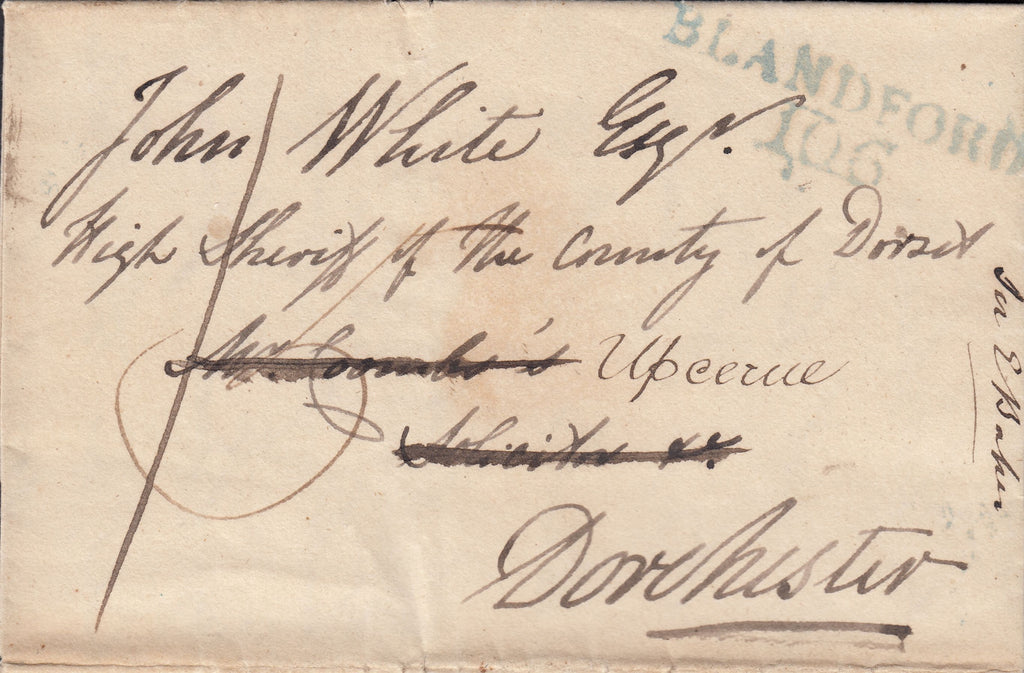 BLANDFORD
106
John White Esqr.
High Sheriff of the County of Dorset
Mr. Coombs's Upcerne
Solicitor &c.
Dorchester